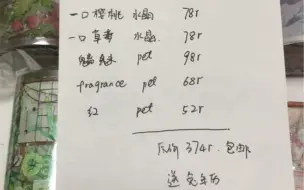 一口樱桃 水晶 78r
一口草莓 水晶 78r
pet 98r
fragrance pet 68r
红 pet 52r
374r 包邮
送兔年历